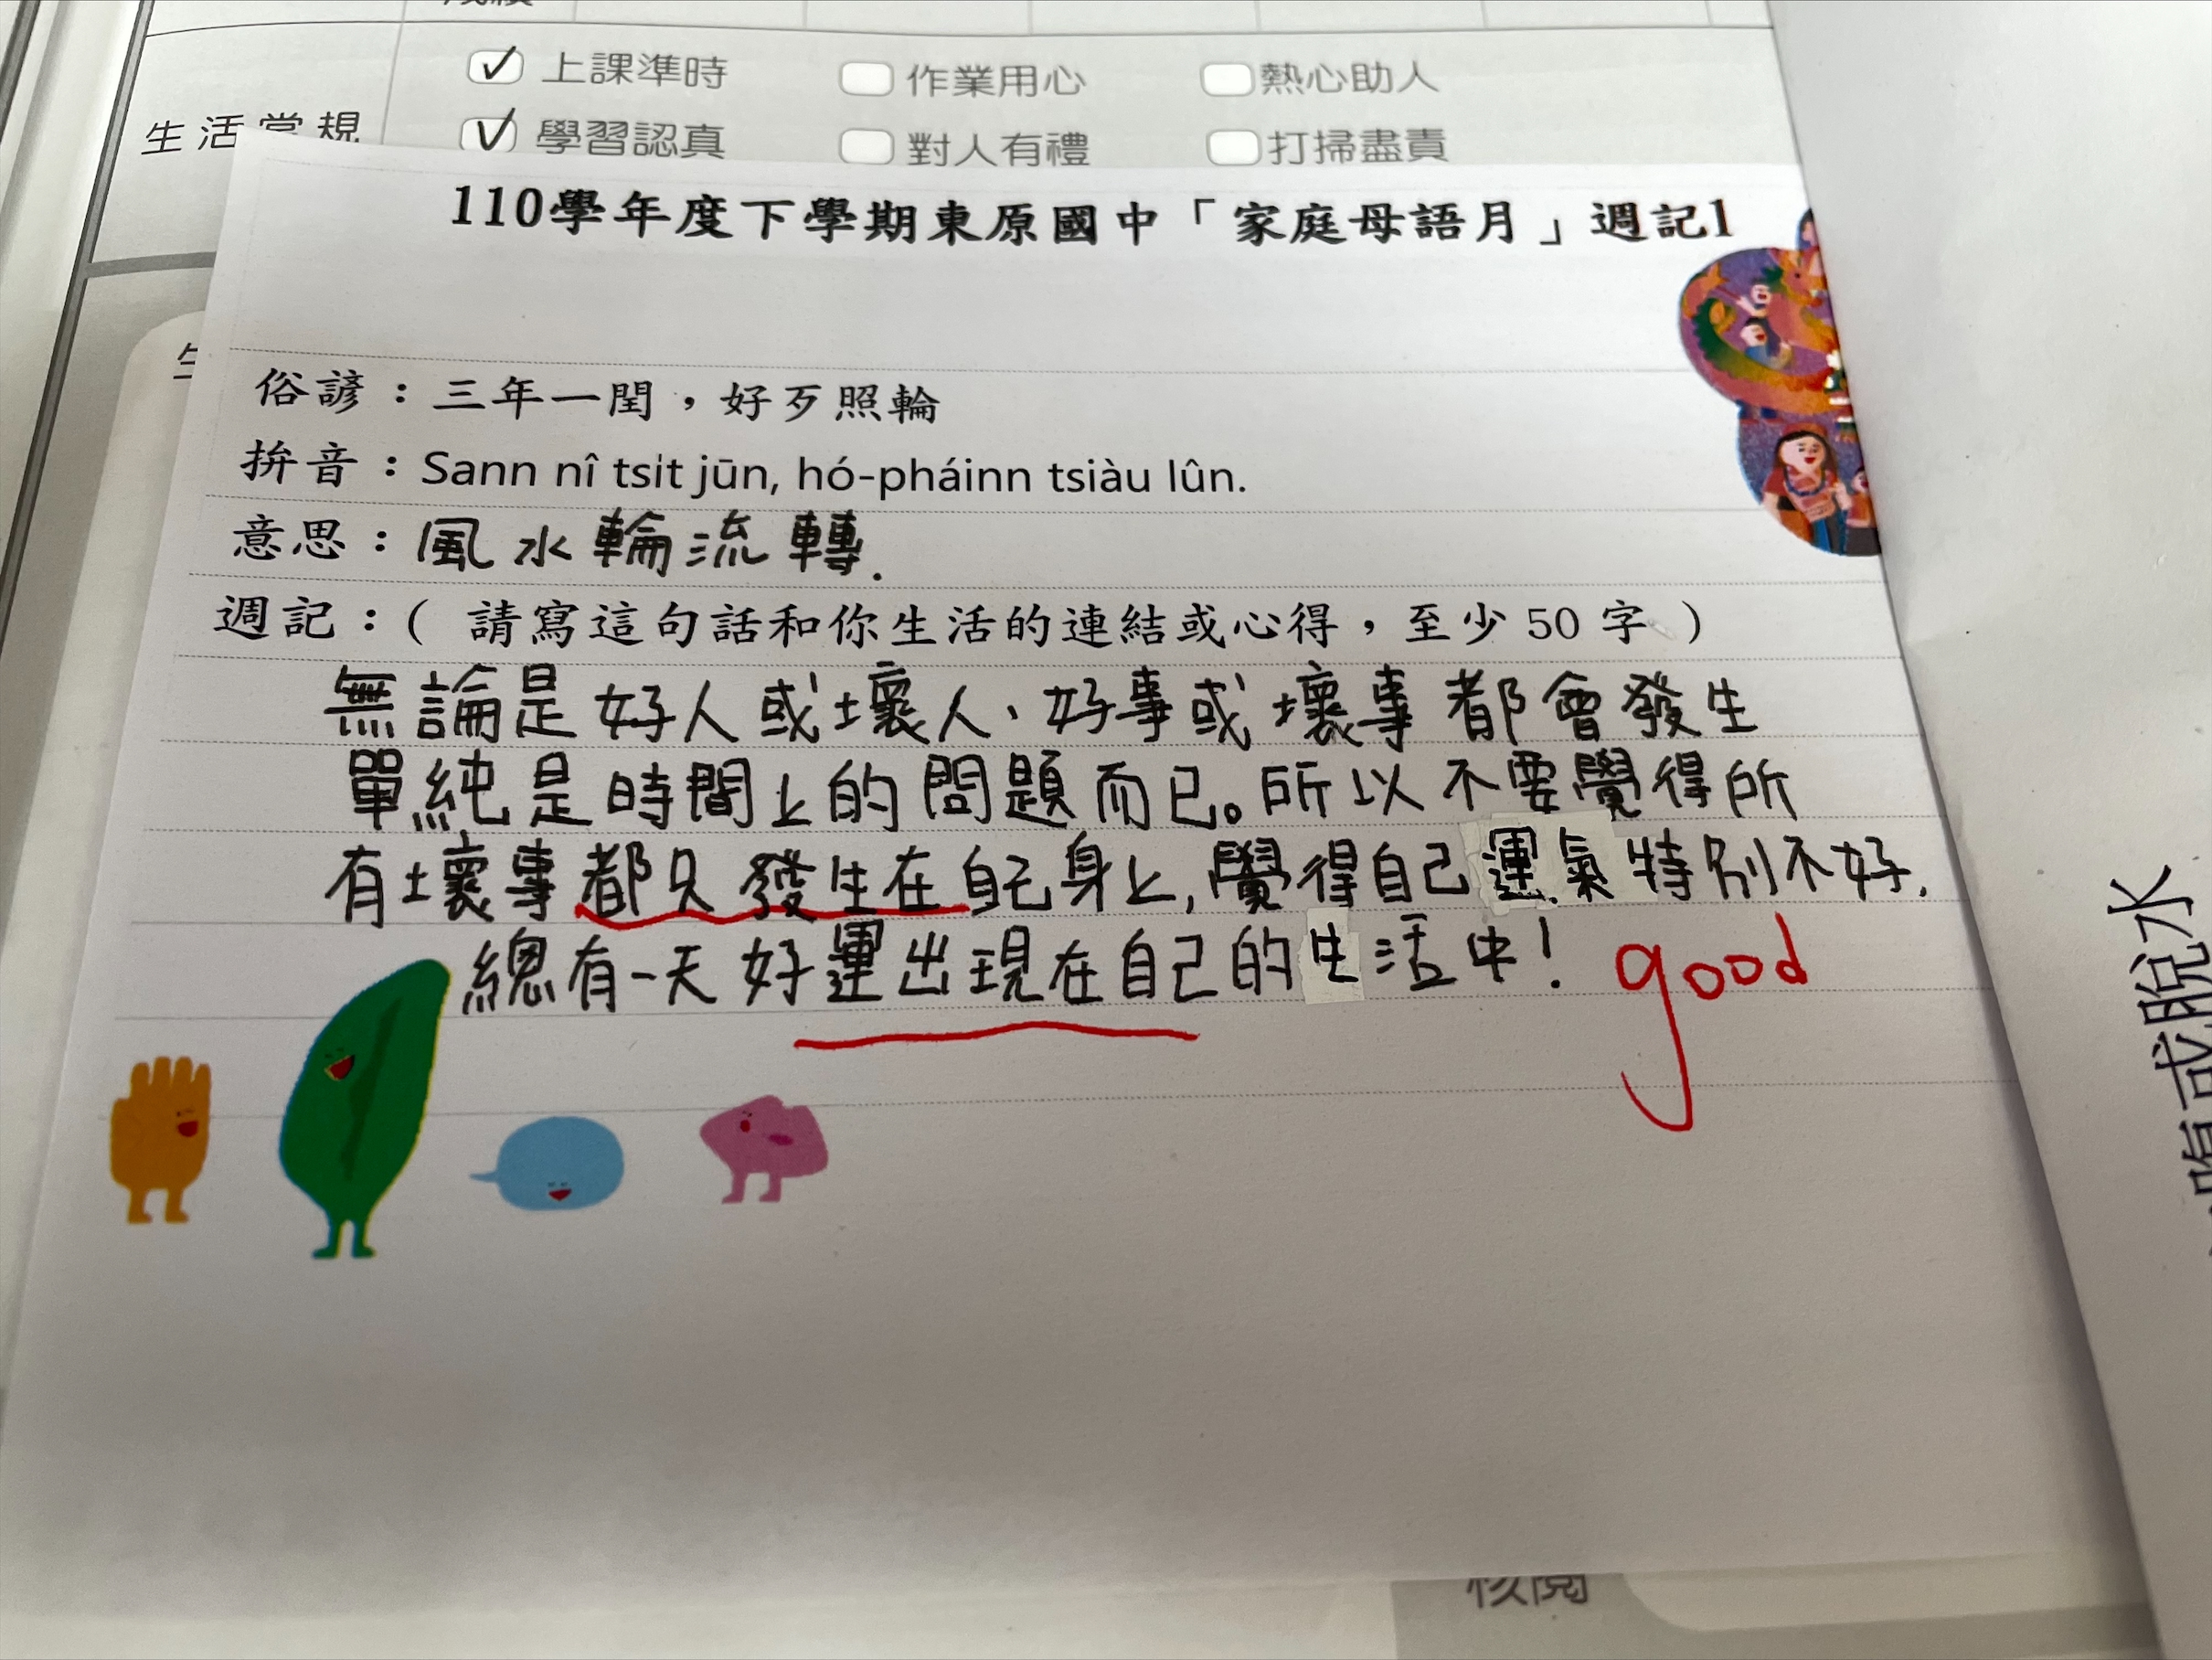 上課準時 作業用心 熱心助人
生活常規 學習認真 對人有禮 打掃盡責
110學年度下學期東原國中「家庭母語月」週記1
俗諺：三年一閏，好歹照輪
拚音：Sann nî tsi̍t jūn, hó-pháinn tsiàu lûn.
意思：風水輪流轉.
週記：( 請寫這句話和你生活的連結或心得，至少 50 字 )
無論是好人或壞人、好事或壞事都會發生
單純是時間上的問題而已。所以不要覺得所
有壞事都只發生在自己身上,覺得自己運氣特別不好,
總有一天好運出現在自己的生活中!
good
或脫水
核閱